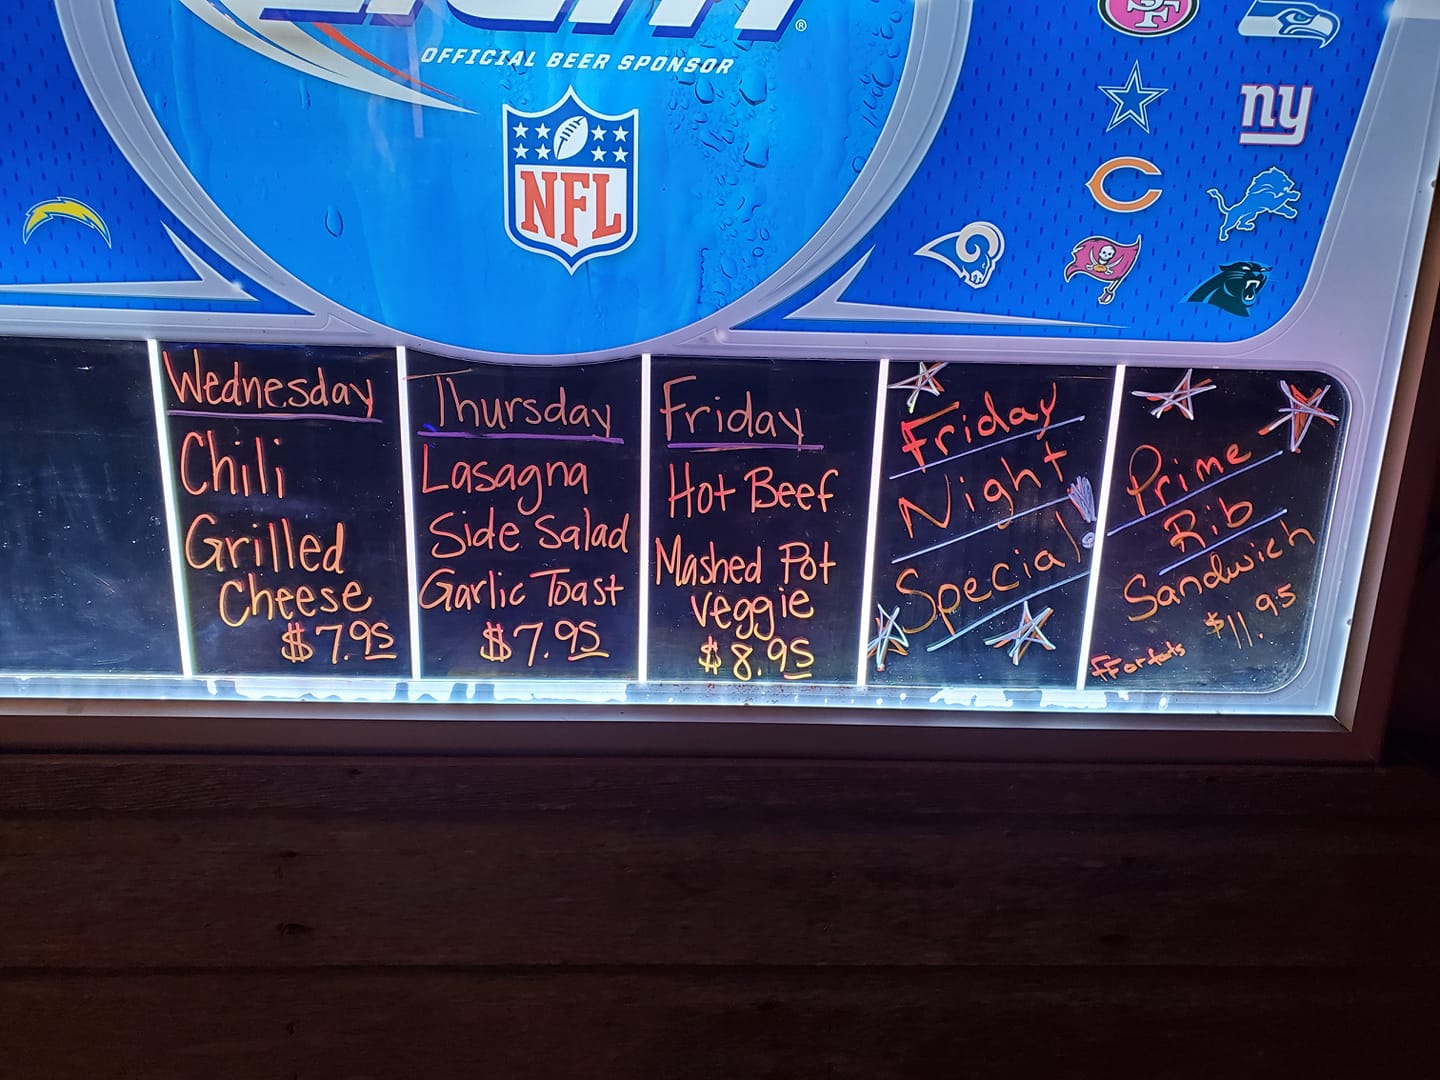 Light
OFFICIAL BEER SPONSOR
®
NFL
SF
ny
Wednesday
Chili
Grilled
Cheese
$7.95
Thursday
Lasagna
Side Salad
Garlic Toast
$7.95
Friday
Hot Beef
Mashed Pot
Veggie
$8.95
Friday
Night
Special!
Prime
Rib
Sandwich
$11.95
FF or tots